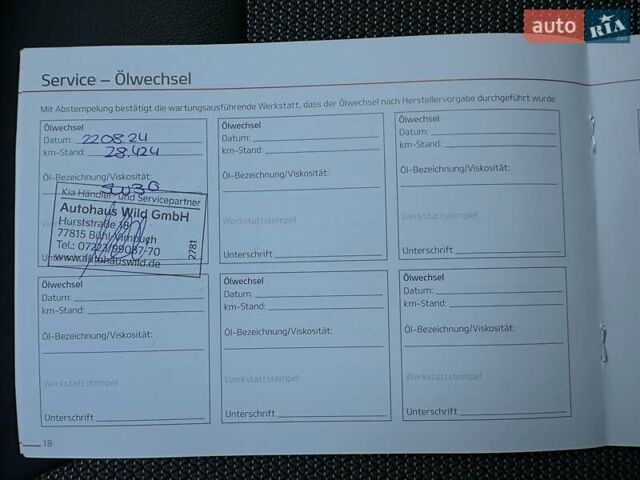 auto RIA.com
Service – Ölwechsel
Mit Abstempelung bestätigt die wartungsausführende Werkstatt, dass der Ölwechsel nach Herstellervorgabe durchgeführt wurde.
Ölwechsel
Datum: 22.08.24
km-Stand: 28.424
Öl-Bezeichnung/Viskosität:
5W30
Kia Händler- und Servicepartner
Autohaus Wild GmbH
Hurststraße
77815 Bühl-Vimbuch
Tel.: 07223/99087-70
www.autohauswild.de
2781
Ölwechsel
Datum:
km-Stand:
Öl-Bezeichnung/Viskosität:
Werkstattstempel
Unterschrift
Ölwechsel
Datum:
km-Stand:
Öl-Bezeichnung/Viskosität:
Werkstattstempel
Unterschrift
Ölwechsel
Datum:
km-Stand:
Öl-Bezeichnung/Viskosität:
Werkstattstempel
Unterschrift
Ölwechsel
Datum:
km-Stand:
Öl-Bezeichnung/Viskosität:
Werkstattstempel
Unterschrift
Ölwechsel
Datum:
km-Stand:
Öl-Bezeichnung/Viskosität:
Werkstattstempel
Unterschrift
18